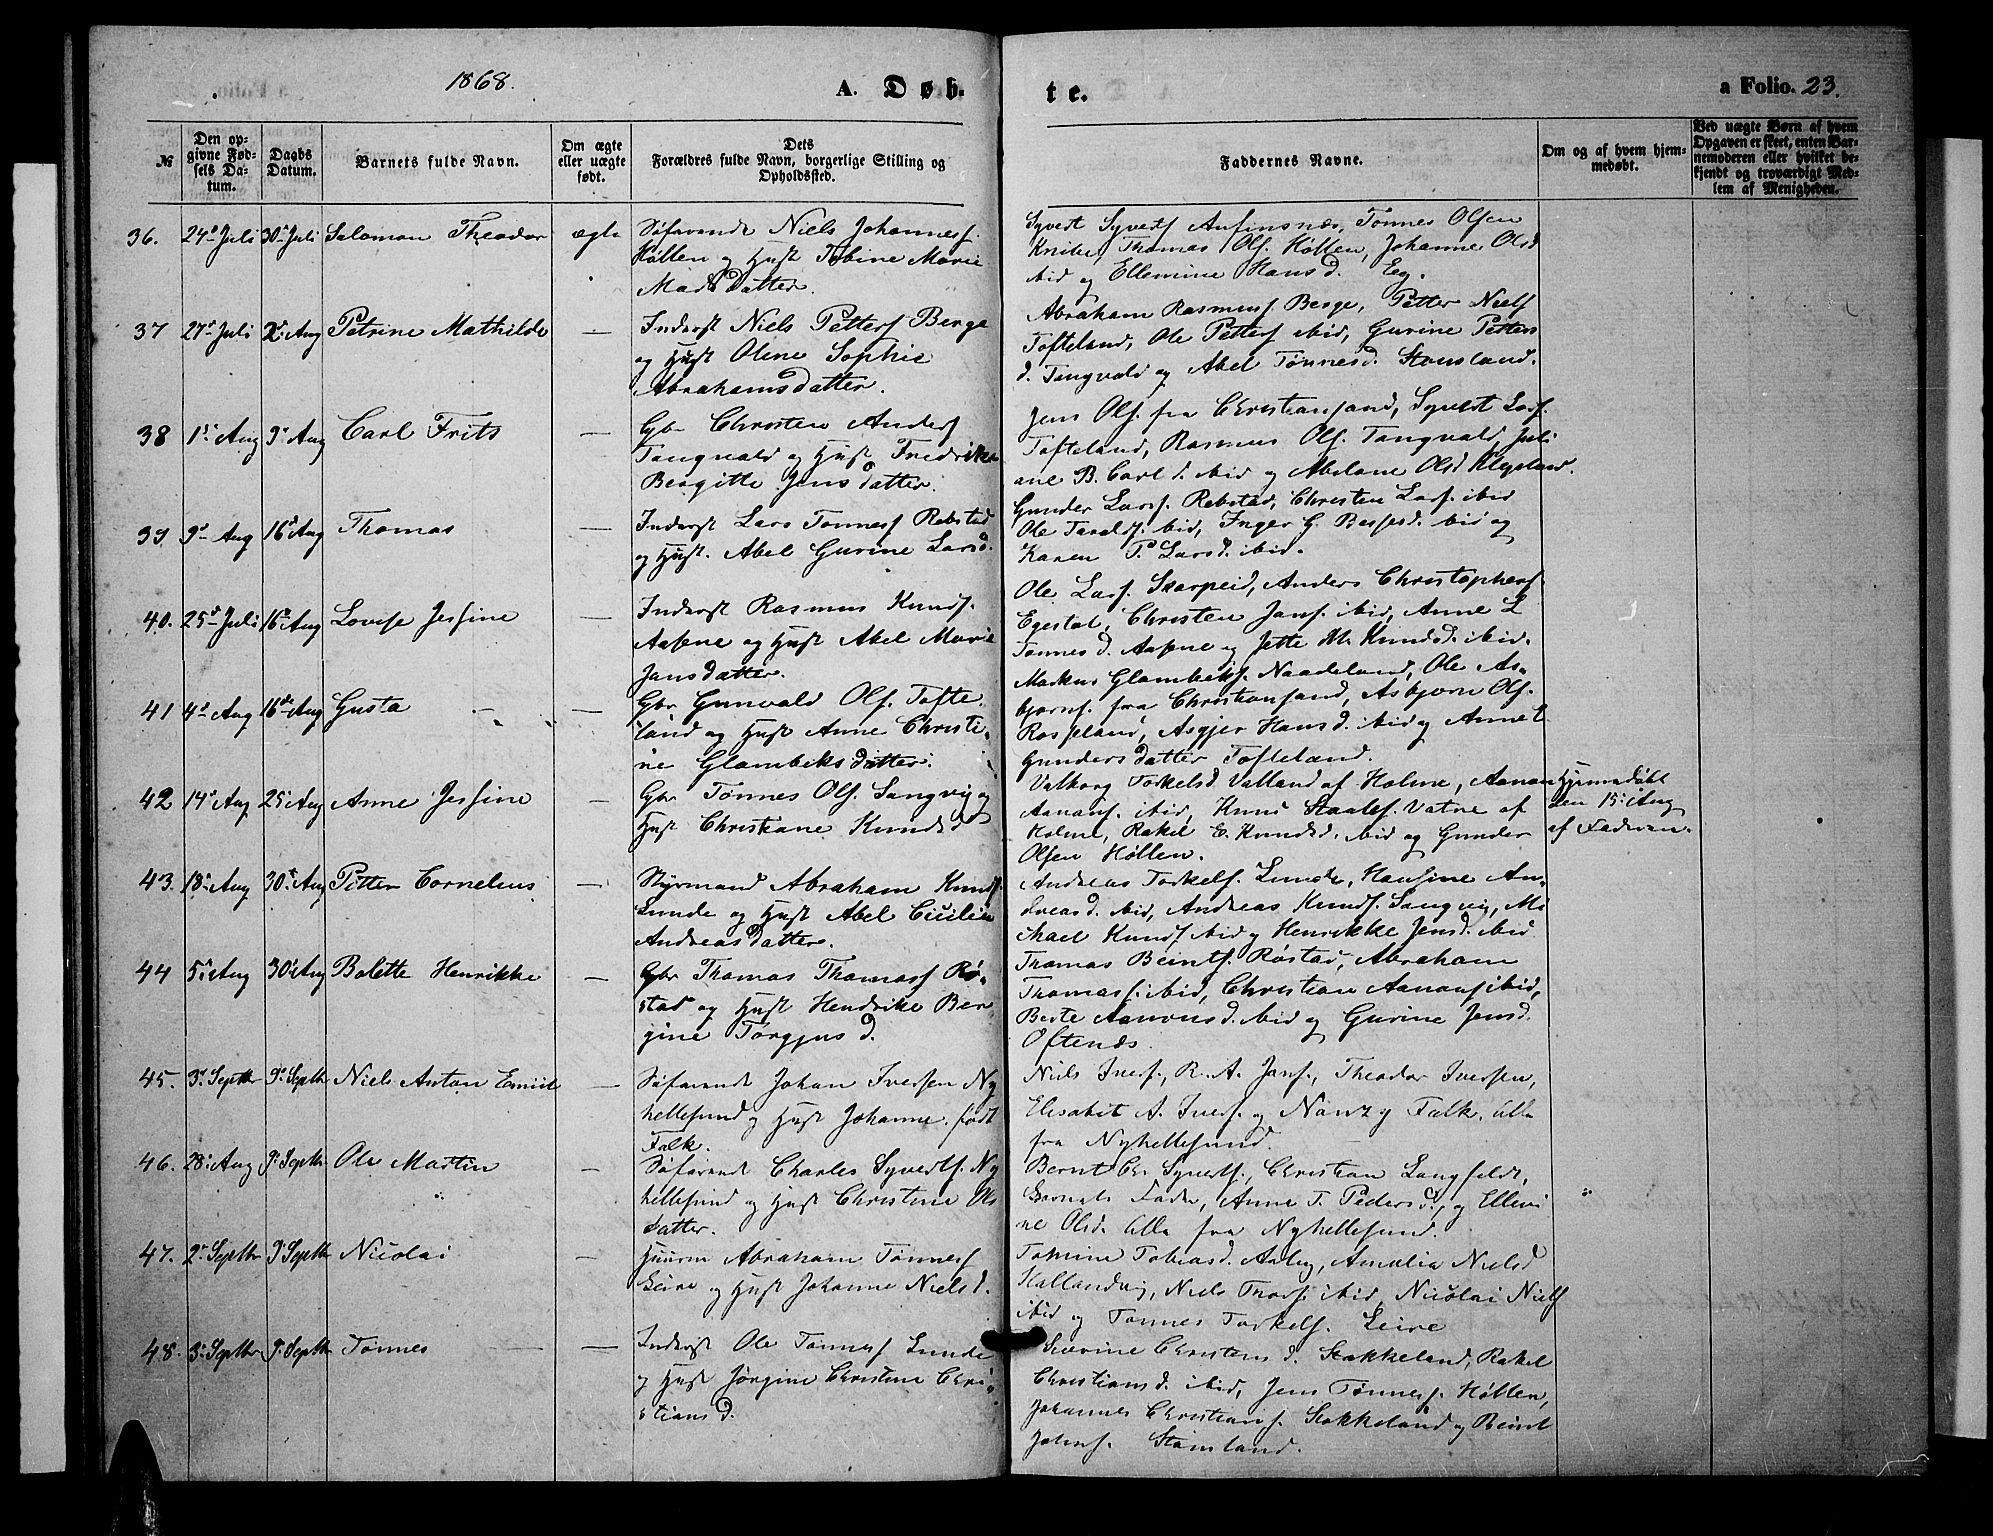 1868. A. Døb-
te. a Folio. 23.
№
Den op-
givne Fød-
sels Da-
tum.
Daabs
Datum.
Barnets fulde Navn.
Om ægte
eller uægte
født.
Dets
Forældres fulde Navn, borgerlige Stilling og
Opholdssted.
Faddernes Navne.
Om og af hvem hjem-
medøbt.
Ved uægte Børn af hvem
Opgaven er skeet, enten Bar-
nemoderen eller hvilket be-
kjendt og troværdigt Med-
lem af Menigheden.
36. 24de Juli 30te Juli Salomon Theodor ægte
Søfarende Niels Johanness.
Høllen og Hust Tobine Marie
Madsdatter.
Syvert Syverts Aufinsnæs, Tønnes Olsen
Knibe, Thomas Ols. Høllen, Johanne Olsd
ibid og Ellemine Hansd. Eeg.
37 27de Juli 2. Aug Petrine Mathilde —
Inderst Niels Petters Berge
og Hust Oline Sophie
Abrahamsdatter.
Abraham Rasmuss. Berge, Petter Niels
Tofteland, Ole Petters ibid, Gurine Petters
d. Tangvald og Abel Tønnesd. Stousland.
38 1ste Aug 9de Aug Carl Frits —
Gbr Christen Anders
Tangvald og Hust Fredrikke
Bergitte Jensdatter.
Jens Ols. fra Christiansand, Syvert Lars.
Tofteland, Rasmus Ols. Tangvald, Juli
ane B. Carld. ibid og Abelone Olsd Klepland.
39 9de Aug 16de Aug Thomas —
Inderst Lars Tønness Rebstad
og Hust. Abel Gurine Larsd.
Gunder Larss. Rebstad, Christen Lars. ibid
Ole Taralds. ibid, Inger G. Bessesd. ibid og
Karen P. Larsd. ibid.
40. 25de Juli 16de Aug Lovise Jessine —
Inderst Rasmus Knuds.
Aasene og Hust Abel Marie
Jansdatter.
Ole Lars. Skarpeid, Anders Christophers.
Egestøl, Christen Jans. ibid, Anne L
Tønnesd. Aasene og Jette M. Knudsd. ibid.
41 4de Aug 16de Aug Gusta —
Gbr Gunvald Ols. Tofte
land og Hust Anne Christi-
ne Glambeksdatter.
Markus Glambeks. Naadeland, Ole As-
bjørns. fra Christiansand, Asbjørn Ols.
Rosseland, Asgjer Hansd. ibid og Anne C
Gundersdatter Tofteland.
42 14de Aug 25de Aug Anne Jessine —
Gbr Tønnes Ols. Langvig og
Hust Christiane Knudsd
Valborg Torkelsd Valland af Holme, Aanan
Aanans. ibid, Knud Staales. Vatne af
Holme, Rakel E. Knudsd. ibid og Gunder
Olsen Høllen.
Hjemmedøbt
den 15de Aug
af Faderen.
43. 18de Aug 30te Aug Petter Cornelius —
Styrmand Abraham Knuds.
Lunde og Hust Abel Cicilie
Andreasdatter.
Andreas Torkels. Lunde, Hansine An-
dreasd. ibid, Andreas Knuds. Langvig, Mi
chael Knuds ibid og Henrikke Jensd. ibid
44 5te Aug 30te Aug Bolette Henrikke —
Gbr Thomas Thomass Rø-
stad og Hust Hendrike Ber
gine Torgjusd.
Thomas Beints. Røstad, Abraham
Thomass. ibid, Christian Aanans ibid,
Berte Aanonsd. ibid og Gurine Jensd.
Oftenæs.
45. 3de Septbr 9de Septbr Niels Anton Emiil —
Søfarende Johan Iversen Ny
hellesund og Hust Johanne. født
Falk.
Niels Ivers., R. A. Jans., Theodor Iversen,
Elisabet A. Ivers. og Nanzy Falk. alle
fra Nyhellesund.
46. 28de Aug 9de Septbr Ole Martin —
Søfarende Charles Syverts. Ny
hellesund og Hust Christine Ols
datter.
Bernt Chr. Syverts., Christian Langfeldt,
Barnets Fader, Anne T. Pedersd., og Elleni
ne Olsd. alle fra Nyhellesund.
47. 2de Septbr 9de Septbr Nicolai —
Huusm Abraham Tønness
Leire og Hust Johanne Nielsd.
Tomine Tobiasd. Aaleg, Amalia Nielsd
Kallandvig, Niels Thors. ibid, Nicolai Niels
ibid og Tønnes Torkels. Leire
48. 3de Septbr 9de Septbr Tønnes —
Inderst Ole Tønness Lunde
og Hust Jørgine Christine Chri-
stiansd.
Severine Christensd. Stokkeland, Rakel
Christiansd. ibid, Jens Tønness. Høllen,
Johannes Christians. Stokkeland og Beint
Johns. Stømland.